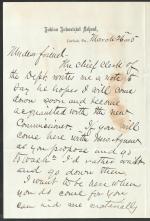 Indian Industrial School,
March 26, 85
My dear friend:
The chief clerk of
the Dept. writes me a note to
say he hopes I will come
down soon and become
acquainted with the new
Commissioner. If you will
come here with
as you propose and go
I'd rather wait
and go down then.
I want to be here when
you do come for you
can aid me materially